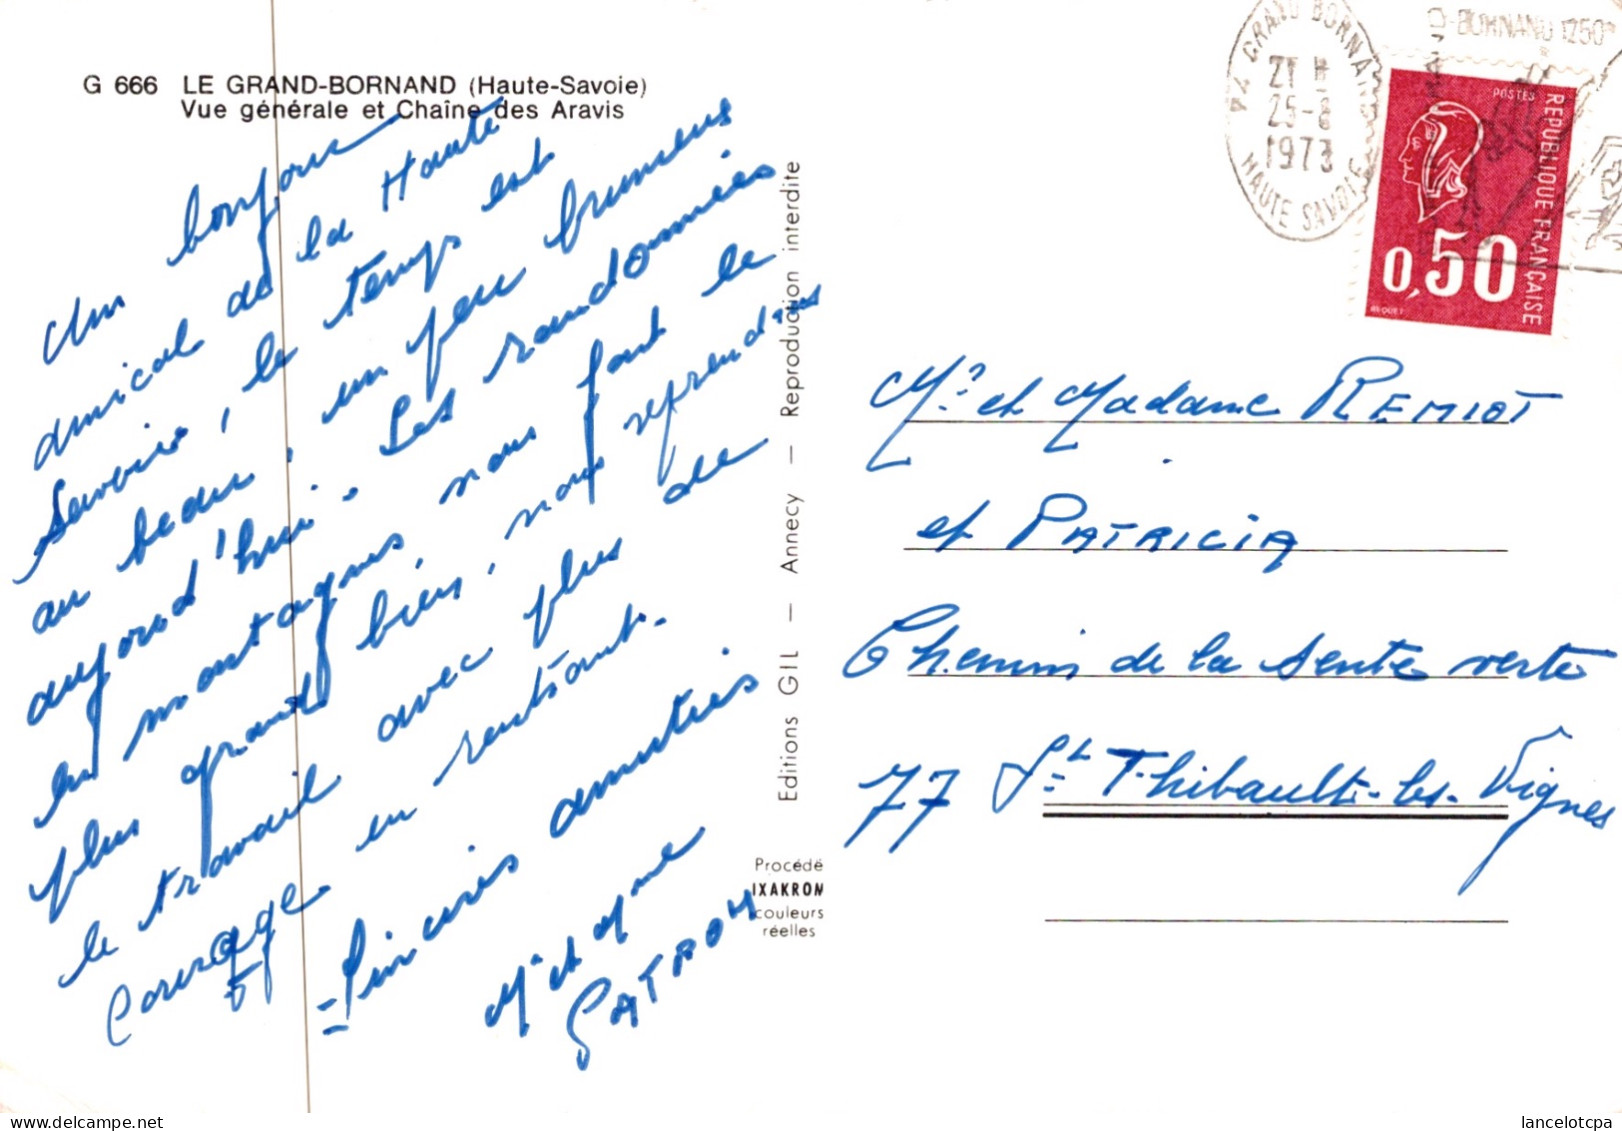 G 666 LE GRAND-BORNAND (Haute-Savoie)
Vue générale et Chaîne des Aravis
Un bonjour
amical de la Haute
Savoie, le temps est
au beau, un peu brumeux
aujourd'hui. Les randonnées
en montagnes nous font le
plus grand bien, nous reprendrons
le travail avec plus de
courage en rentrant.
Sincères amitiés
Mr et Mme
GATRON
Editions GIL — Annecy — Reproduction interdite
Procédé
IXAKRON
couleurs
réelles
74 GRAND BORNAND
21 H
25-8
1973
HAUTE SAVOIE
BORNAND 1250m
POSTES
REPUBLIQUE FRANÇAISE
0,50
BEQUET
Mr et Madame REMIOT
et PATRICIA
Chemin de la sente verte
77 St Thibault-les-Vignes
lancelotcpa